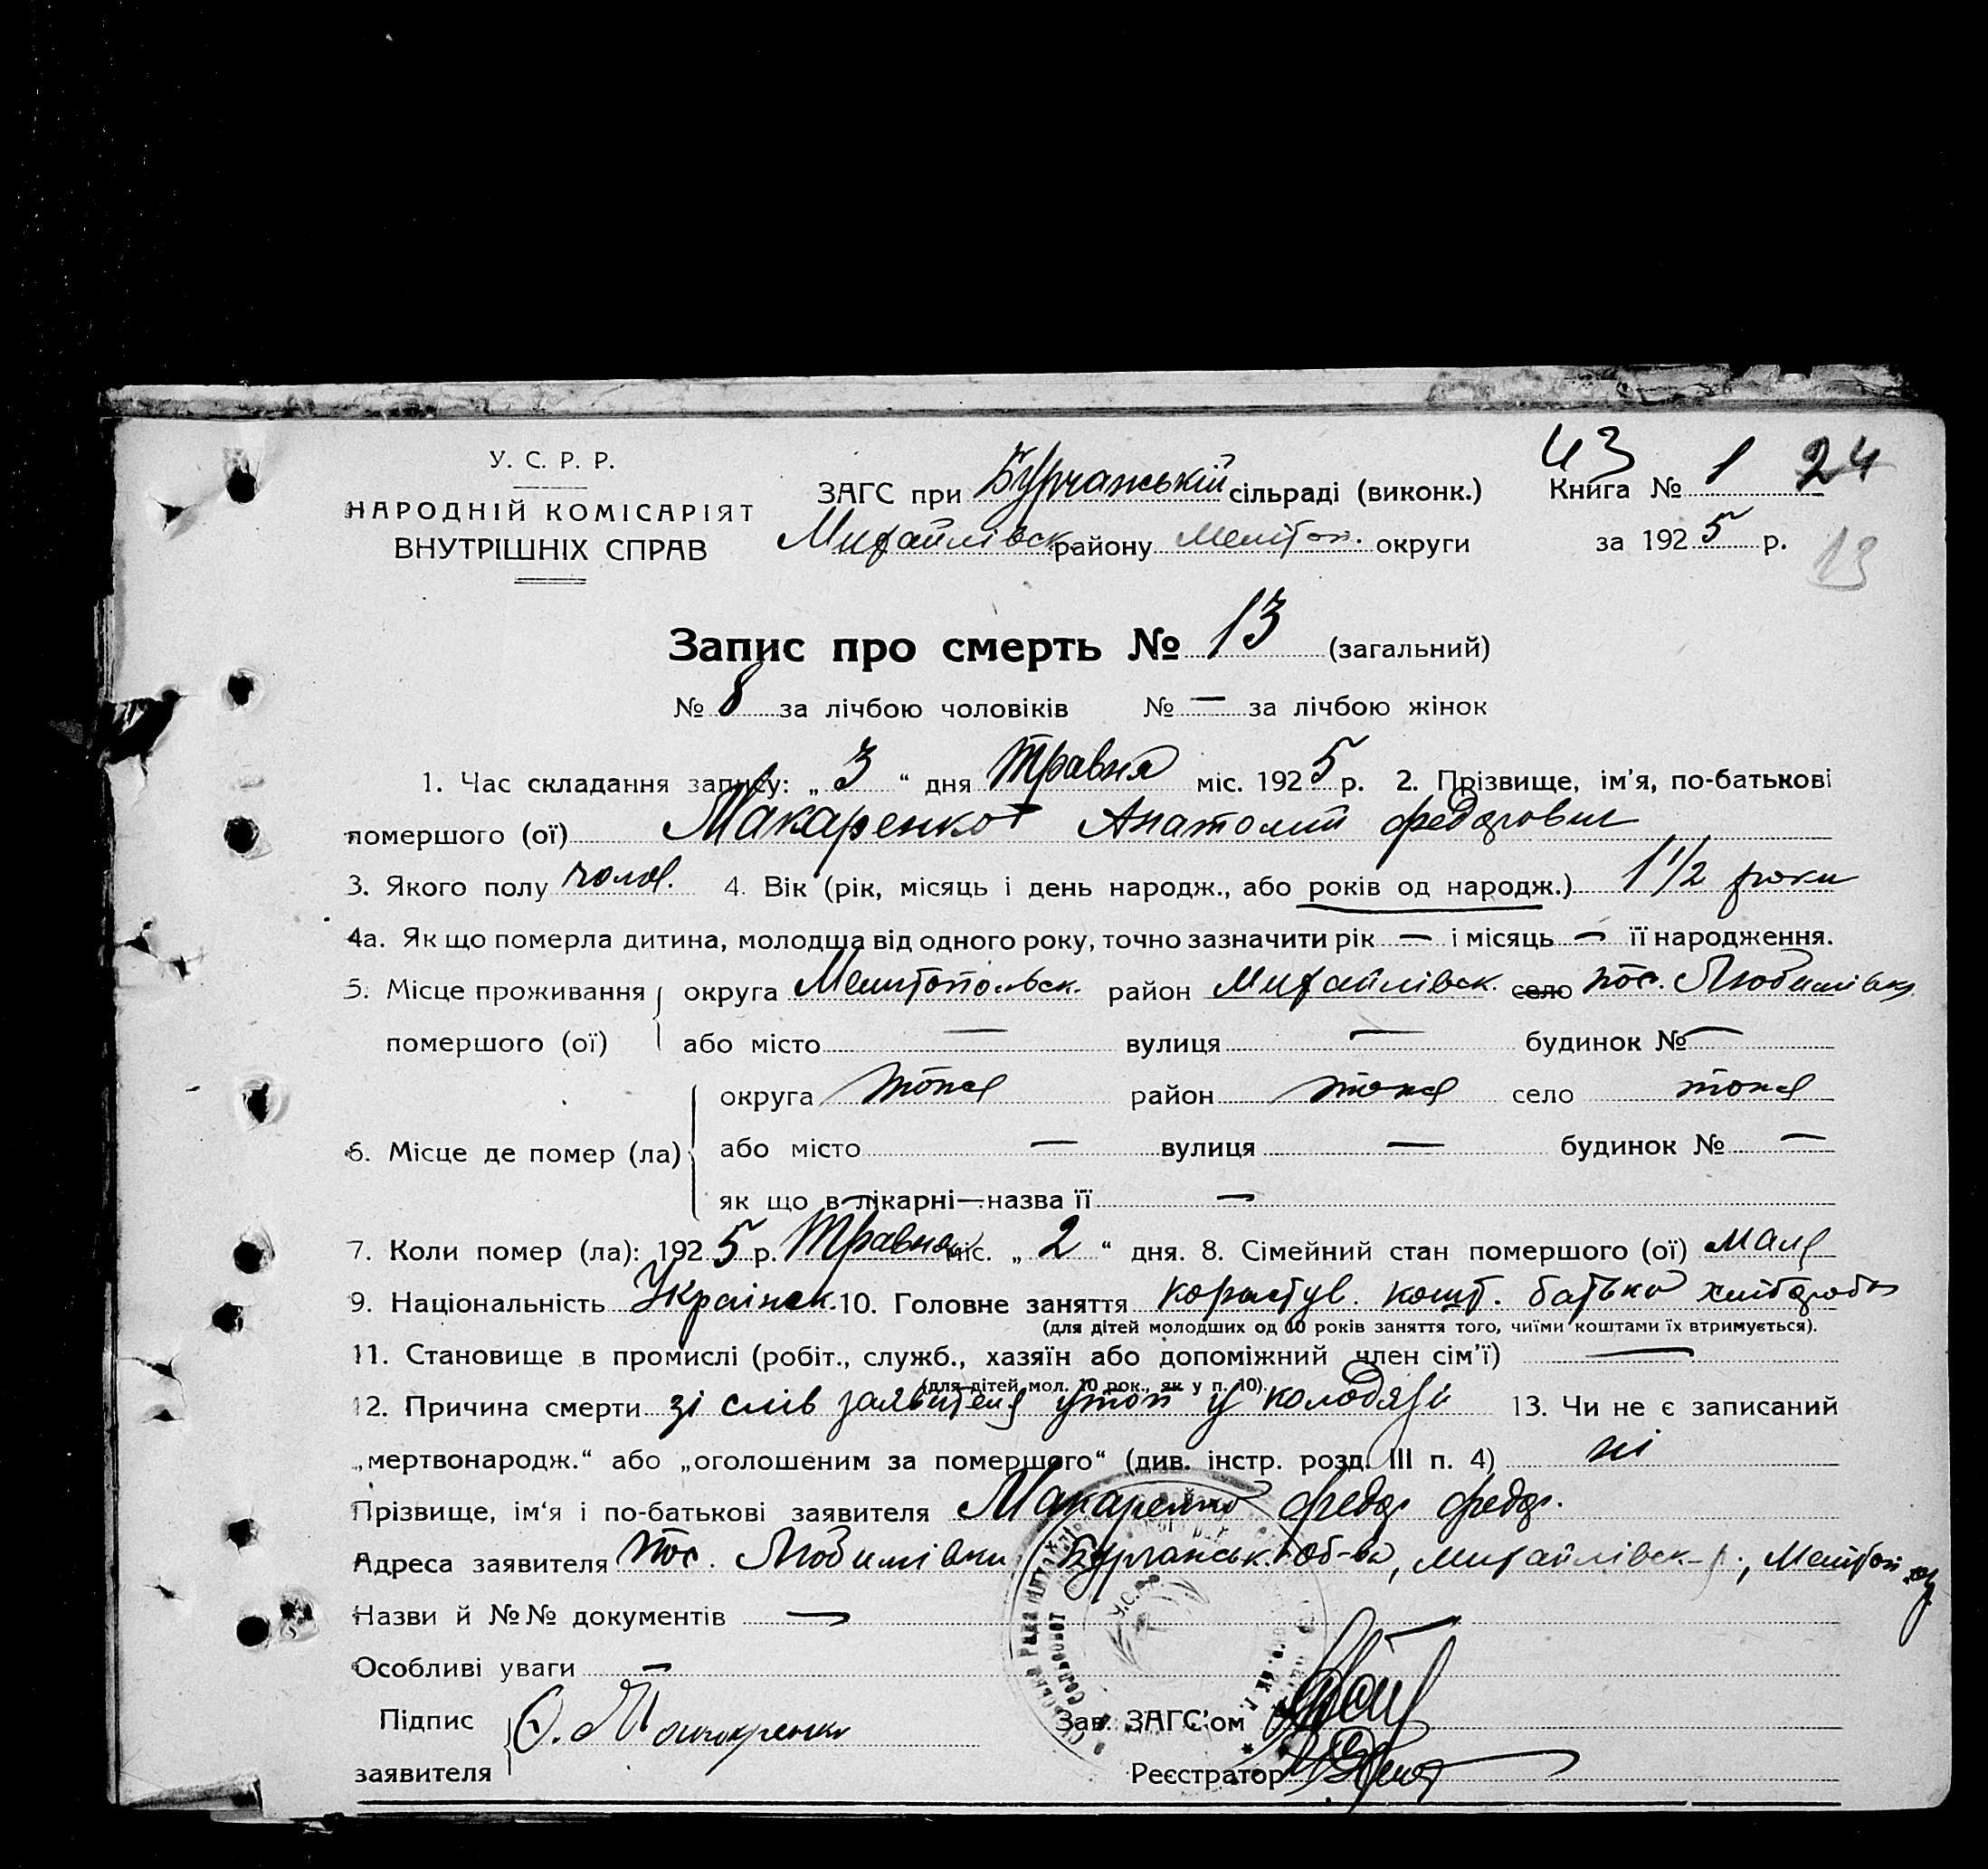 43 1 24
У. С. Р. Р.
НАРОДНІЙ КОМІСАРІЯТ
ВНУТРІШНІХ СПРАВ
ЗАГС при Бурчанській сільраді (виконк.) Книга №
Михайлівськ. району Меліт оп. округи за 1925 р.
13
Запис про смерть № 13 (загальний)
№ 8 за лічбою чоловіків № — за лічбою жінок
1. Час складання запису: „ 3 “ дня Травня міс. 1925 р. 2. Прізвище, ім'я, по-батькові
помершого (ої) Макаренко Анатолий Федорович
3. Якого полу чолов. 4. Вік (рік, місяць і день народж., або років од народж.) 1 1/2 роки
4а. Як що померла дитина, молодша від одного року, точно зазначити рік — і місяць — її народження.
5. Місце проживання округа Мелитопольск. район Михайлівск. село пос. Любимівка
помершого (ої) або місто — вулиця — будинок № —
округа тоже район тоже село тоже
6. Місце де помер (ла) або місто — вулиця — будинок № —
як що в лікарні—назва її —
7. Коли помер (ла): 1925 р. Травня міс. „ 2 “ дня. 8. Сімейний стан помершого (ої)
9. Національність Українск. 10. Головне заняття користув. кошт. батька хлібороба
(для дітей молодших од 10 років заняття того, чиїми коштами їх втримується).
11. Становище в промислі (робіт., служб., хазяїн або допоміжний член сім'ї) —
(для дітей мол. 10 рок., як у п. 10).
12. Причина смерти зі слів заявителя утоп у колодязі 13. Чи не є записаний
„мертвонародж.“ або „оголошеним за помершого“ (див. інстр. розд. III п. 4) ні
Прізвище, ім'я і по-батькові заявителя Макаренко Федор Федор.
Адреса заявителя пос. Любимівки Бурчанськ. об-ва, Михайлівск. р., Мелітоп. окр.
Назви й №№ документів —
Особливі уваги —
Підпис
заявителя Зав. ЗАГС'ом
Реєстратор